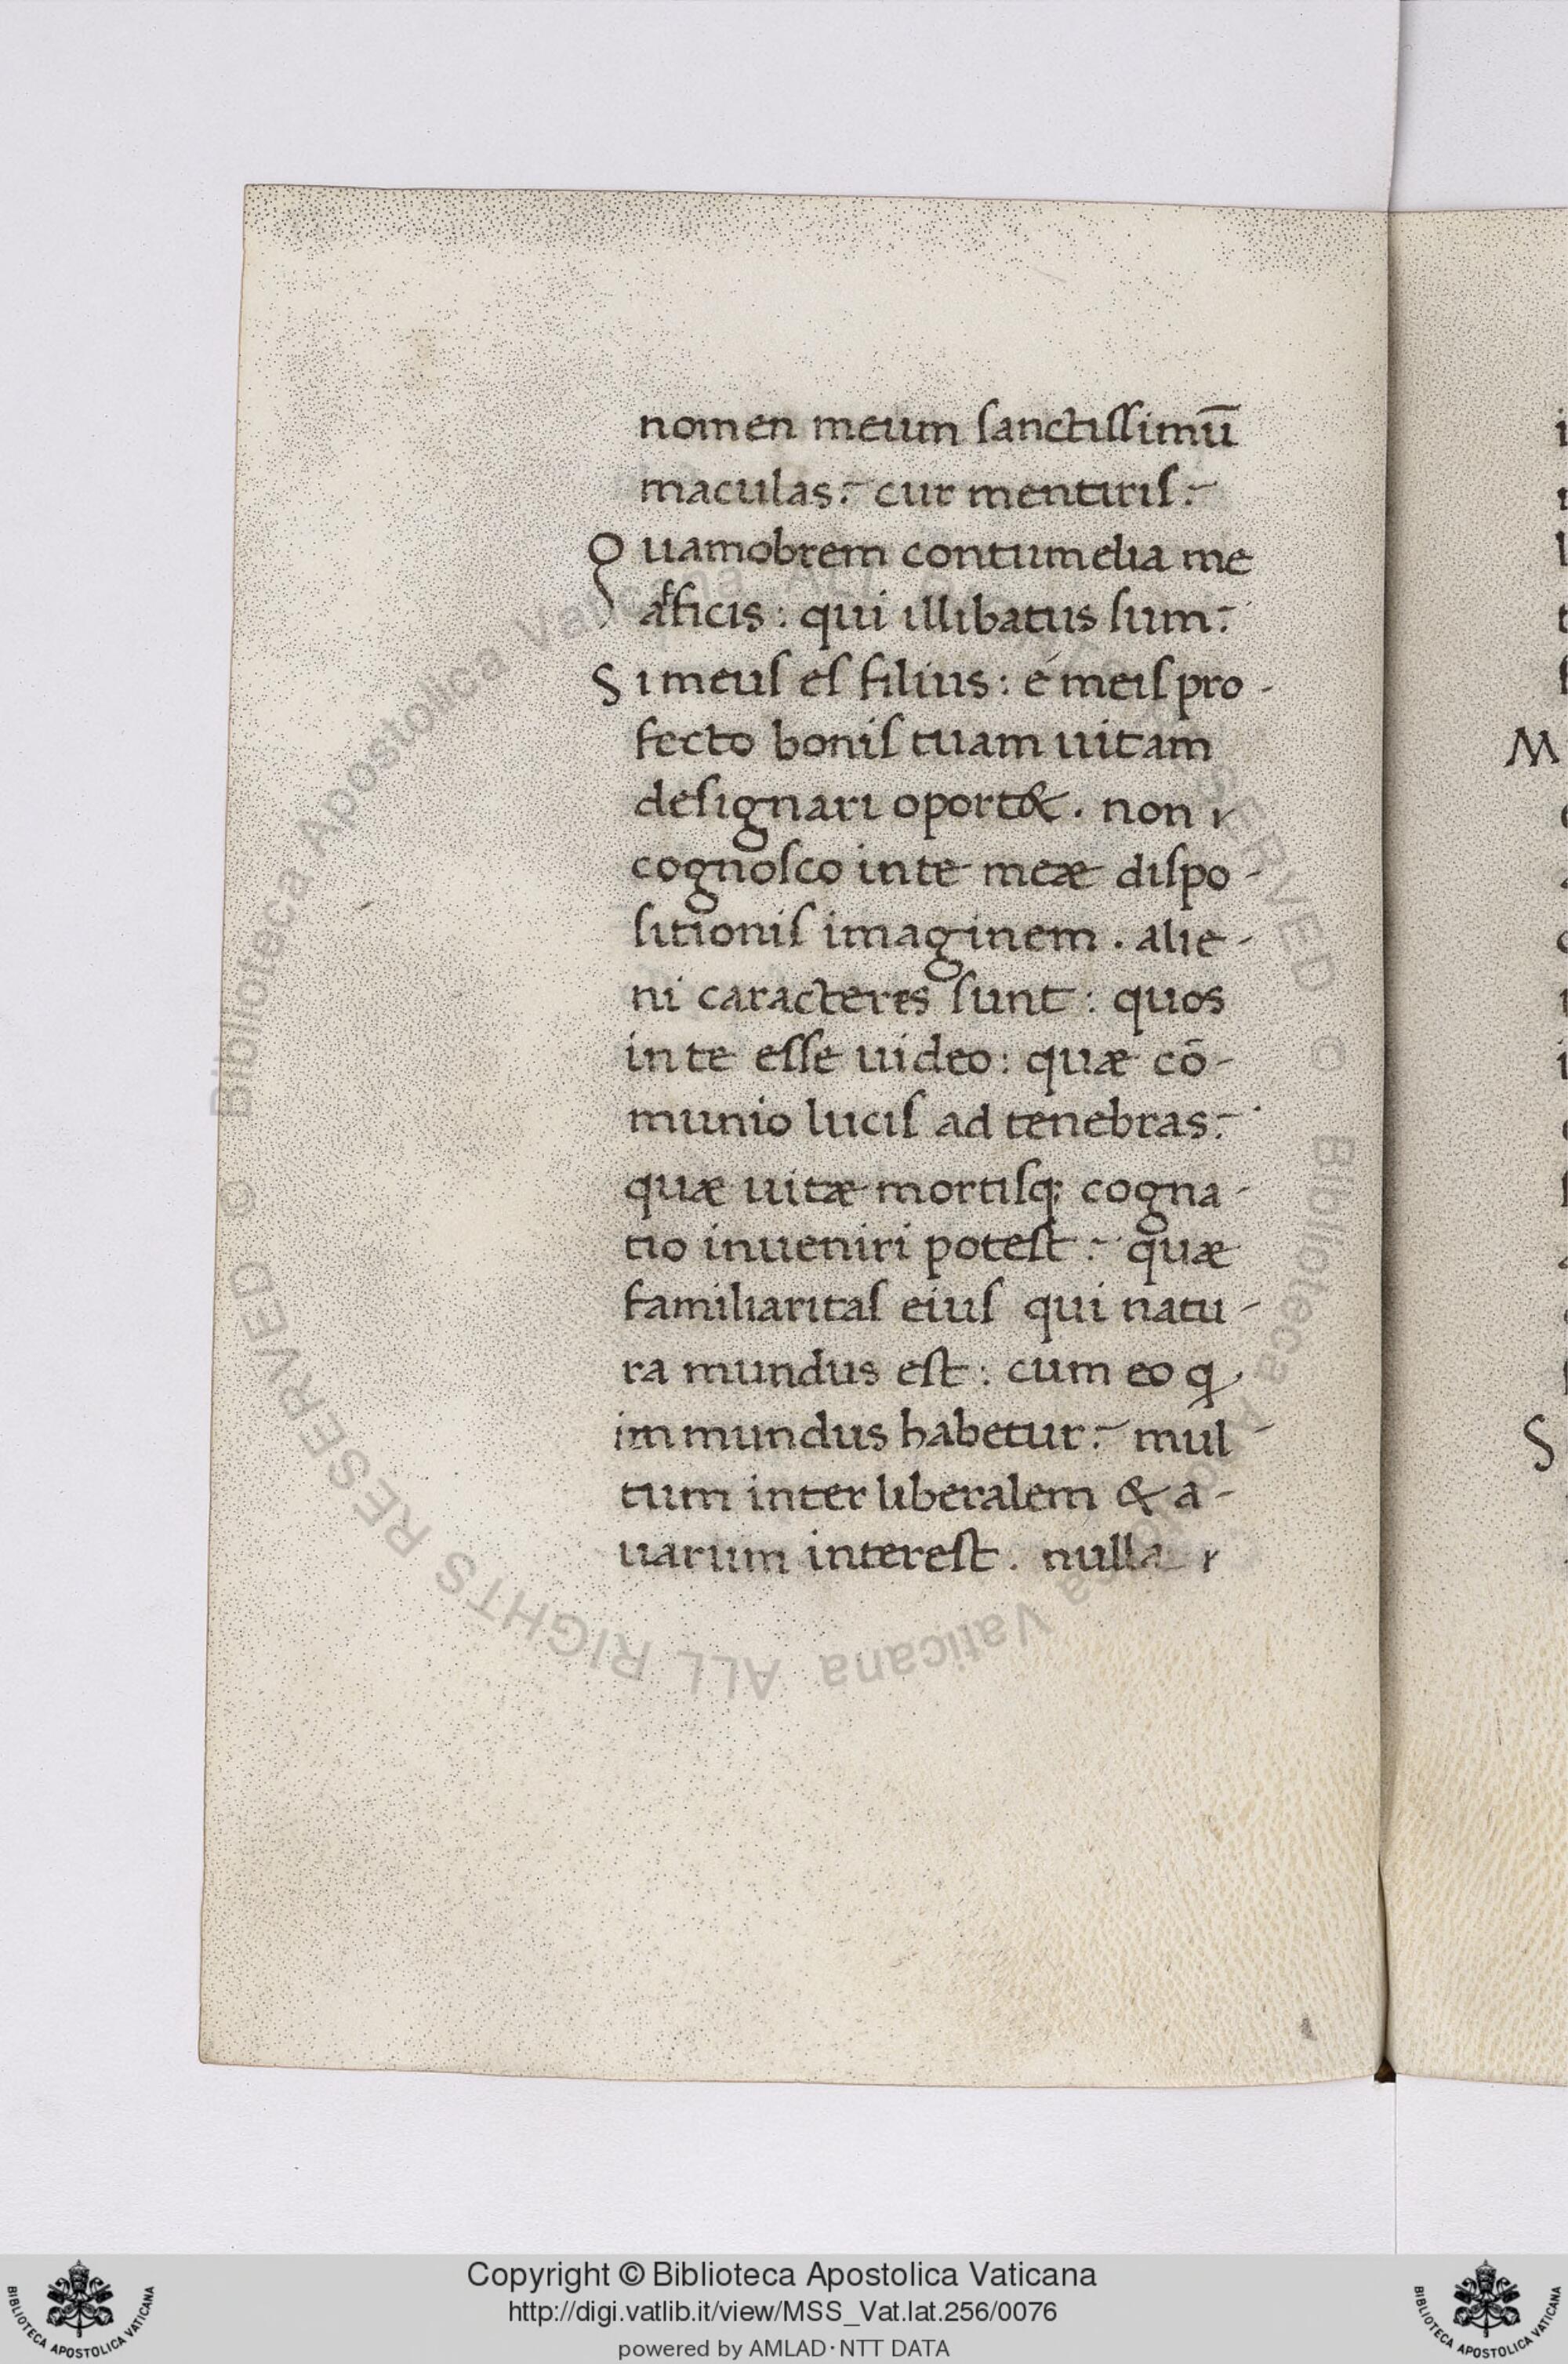 nomen meum sanctissimū
maculas? cur mentiris?
Quamobrem contumelia me
afficis: qui illibatus sum?
Si meus es filius: é meis pro-
fecto bonis tuam uitam
designari oport&. non r
cognosco in te meæ dispo-
sitionis imaginem. alie-
ni caracteres sunt: quos
in te esse uideo: quæ cō-
munio lucis ad tenebras?
quæ uitæ mortisq; cogna-
tio inueniri potest? quæ
familiaritas eius qui natu-
ra mundus est: cum eo q
immundus habetur? mul-
tum inter liberalem & a-
uarum interest. nulla r
M
S
Biblioteca Apostolica Vaticana ALL RIGHTS RESERVED © Biblioteca Apostolica Vaticana ALL RIGHTS RESERVED ©
Copyright © Biblioteca Apostolica Vaticana
http://digi.vatlib.it/view/MSS_Vat.lat.256/0076
powered by AMLAD·NTT DATA
BIBLIOTECA APOSTOLICA VATICANA
BIBLIOTECA APOSTOLICA VATICANA